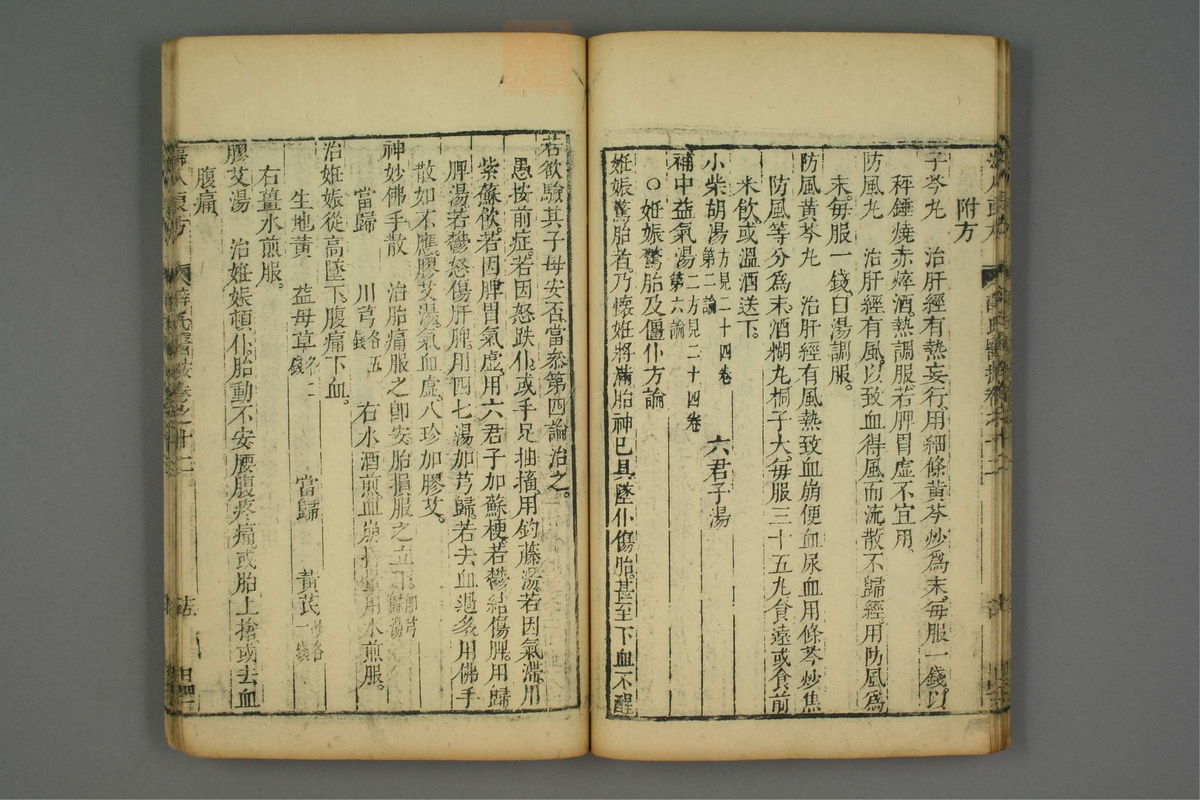 附方
子芩丸　治肝經有熱妄行用細條黃芩炒爲末每服一錢以
秤錘燒赤焠酒熱調服若脾胃虛不宜用
防風丸　治肝經有風以致血得風而流散不歸經用防風爲
末每服一錢白湯調服
防風黃芩丸　治肝經有風熱致血崩便血尿血用條芩炒焦
防風等分爲末酒糊丸桐子大每服三十五丸食遠或食前
米飲或溫酒送下
小柴胡湯方見二十四卷第一論　六君子湯
補中益氣湯二方見二十四卷第六論
○妊娠驚胎及僵仆方論
妊娠驚胎者乃懷妊將滿胎神已具墜仆傷胎甚至下血不醒
若欲驗其子母安否當叅第四論治之
愚按前症若因怒跌仆或手足抽搐用釣藤湯若因氣滯用
紫蘇飲若因脾胃氣虛用六君子加蘇梗若鬱結傷脾用歸
脾湯若鬱怒傷肝脾用四七湯加芎歸若去血過多用佛手
散如不應膠艾湯氣血虛八珍加膠艾
神妙佛手散　治胎痛服之卽安胎損服之立　卽芎歸湯
當歸　川芎各五錢　右水酒煎血崩　用水煎服
治妊娠從高墜下腹痛下血
生地黃　益母草各二錢　當歸　黃芪炒各一錢
右薑水煎服
膠艾湯　治妊娠頓仆胎動不安腰腹疼痛或胎上搶或去血
腹痛
婦人良方　薛氏醫按卷之十二